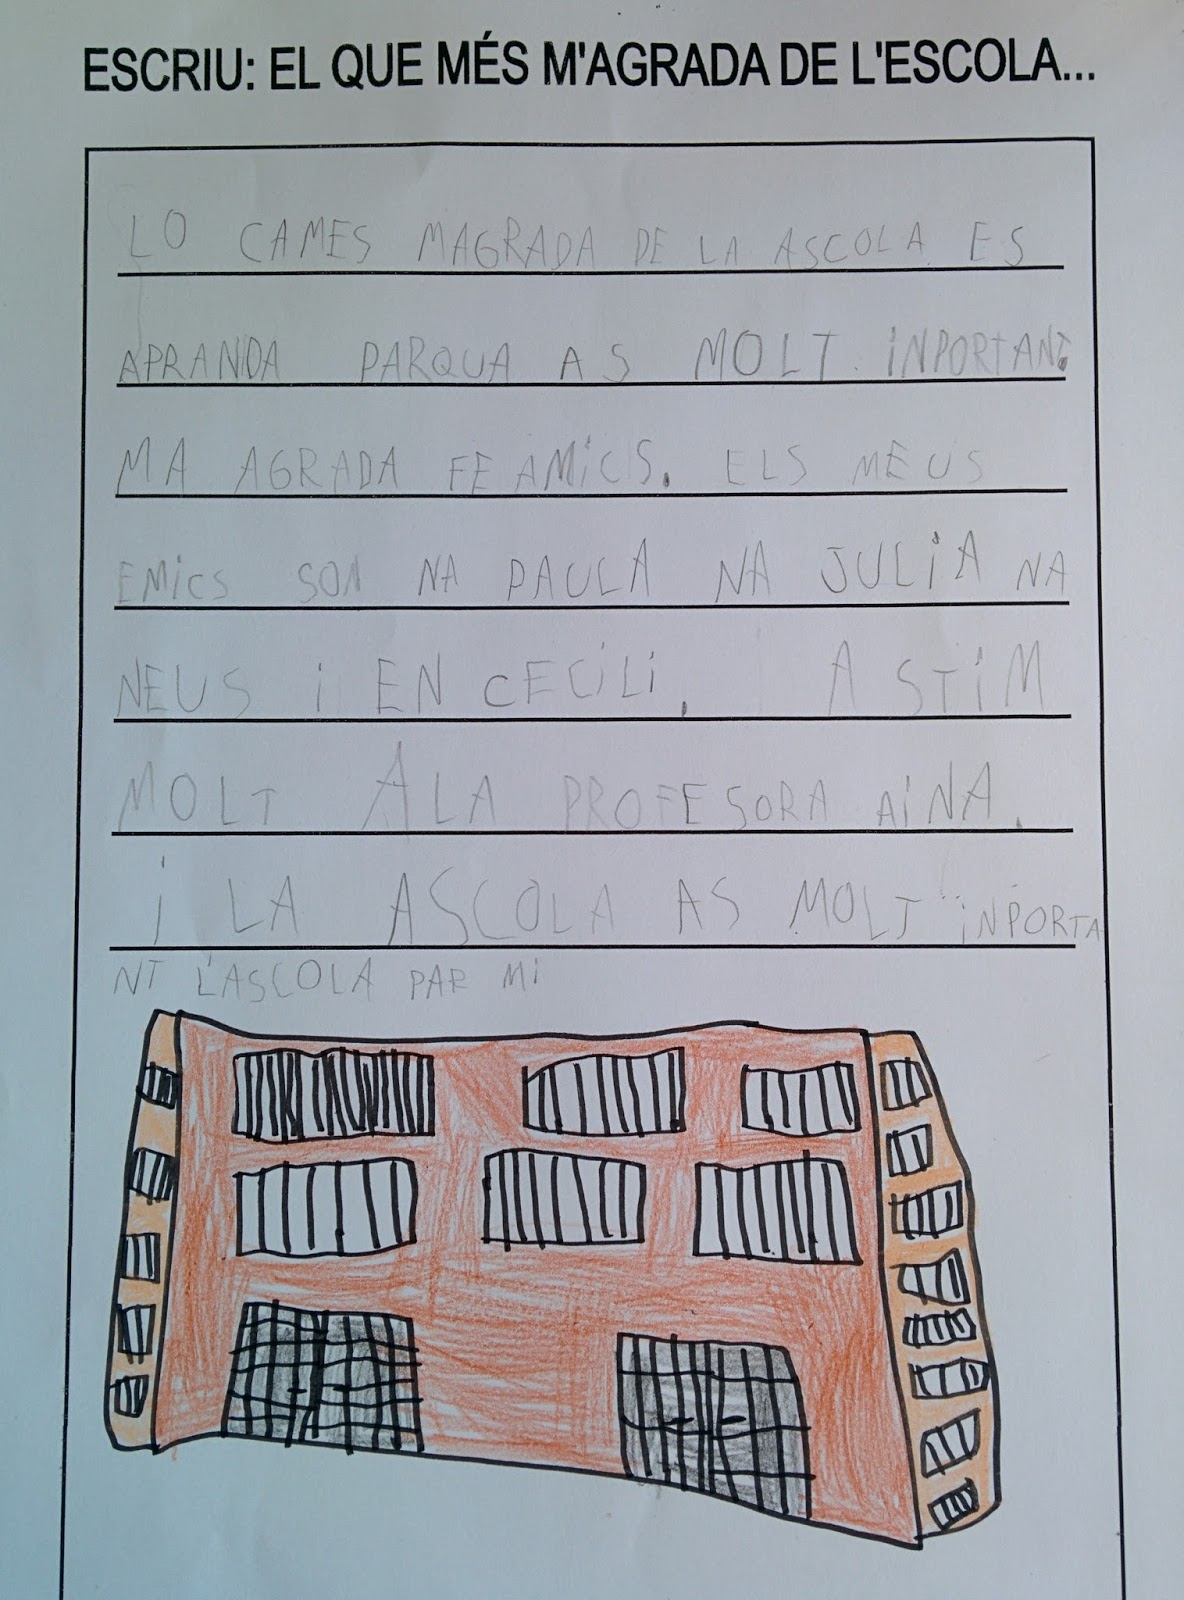 ESCRIU: EL QUE MÉS M'AGRADA DE L'ESCOLA...
LO CAMES MAGRADA DE LA ASCOLA ES
APRANDA PARQUA AS MOLT iNPORTANT.
MA AGRADA FE AMiCS. ELS MEUS
EMiCS SON NA PAULA NA JULiA NA
NEUS i EN CECiLi. A STiM
MOLT A LA PROFESORA AiNA.
i LA ASCOLA AS MOLT iNPORTA
NT L'ASCOLA PAR Mi